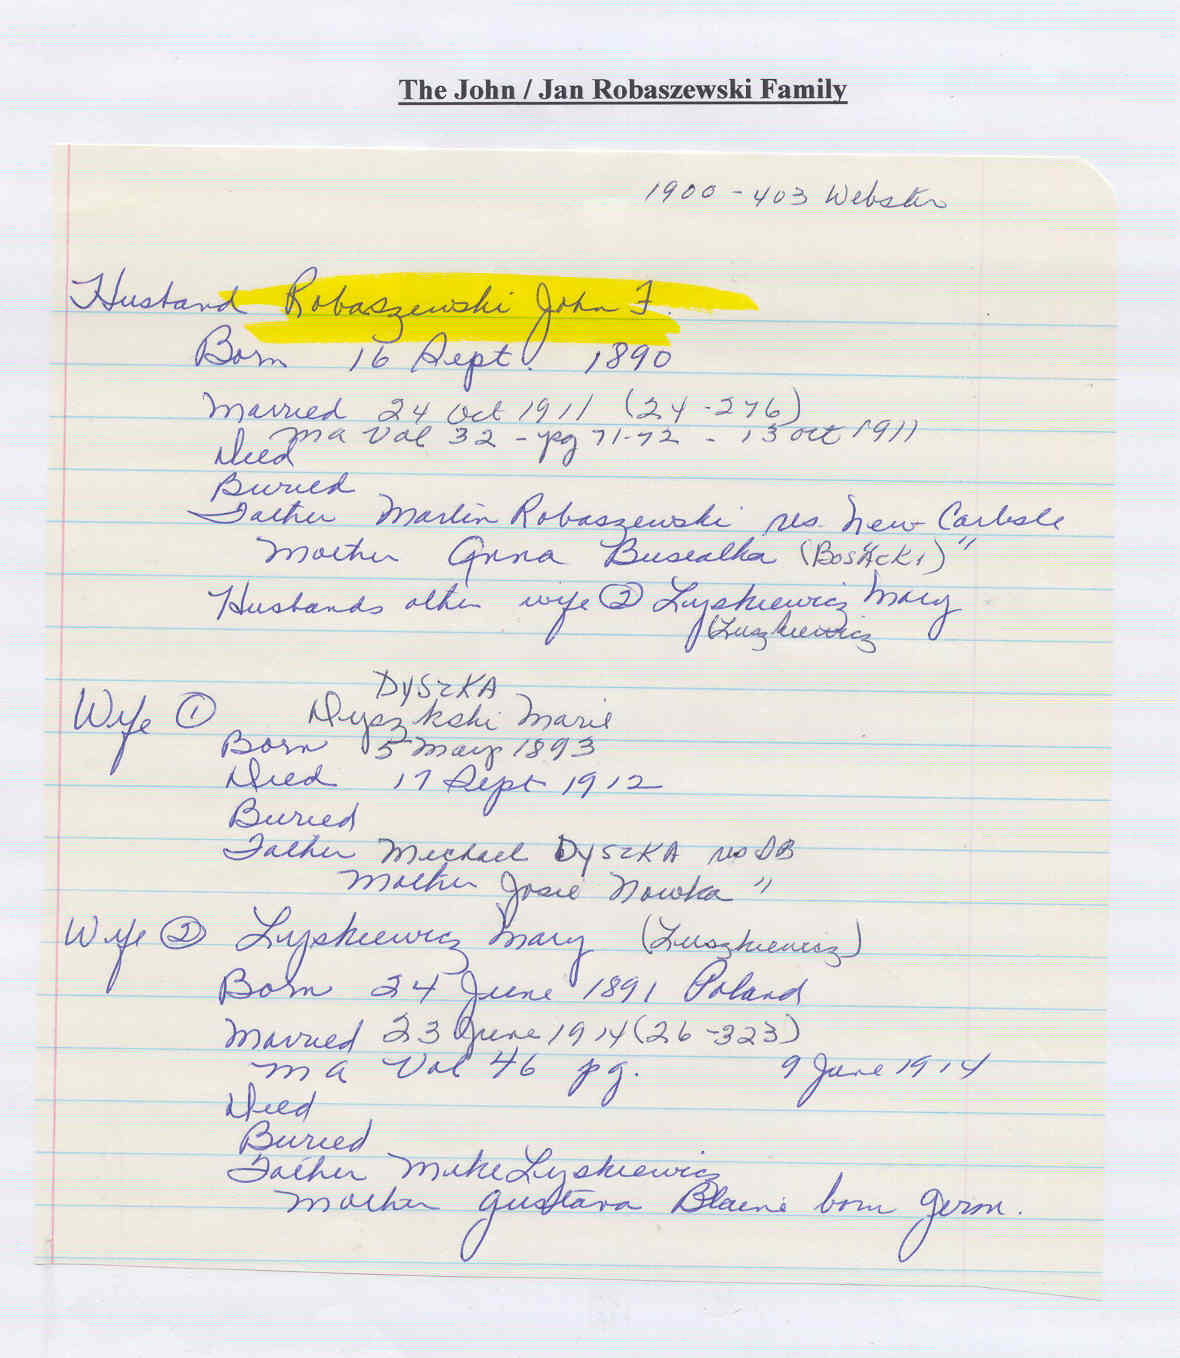 The John / Jan Robaszewski Family
1900 - 403 Webster
Husband Robaszewski John F.
Born 16 Sept. 1890
Married 24 Oct 1911 (24-276)
MA Vol 32 - pg 71-72 - 13 Oct 1911
Died
Buried
Father Martin Robaszewski res. New Carlisle
Mother Anna Busealka (BOSACKI) "
Husbands other wife ② Lyskiewicz Mary
(Luszkiewicz
DYSZKA
Wife ① Dyszkski Marie
Born 5 May 1893
Died 17 Sept 1912
Buried
Father Michael DYSZKA res SB
Mother Josie Nowka "
Wife ② Lyskiewicz Mary (Luszkiewicz)
Born 24 June 1891 Poland
Married 23 June 1914 (26-323)
MA Vol 46 pg. 9 June 1914
Died
Buried
Father Mike Lyskiewicz
Mother Gustava Blaene born Germ.